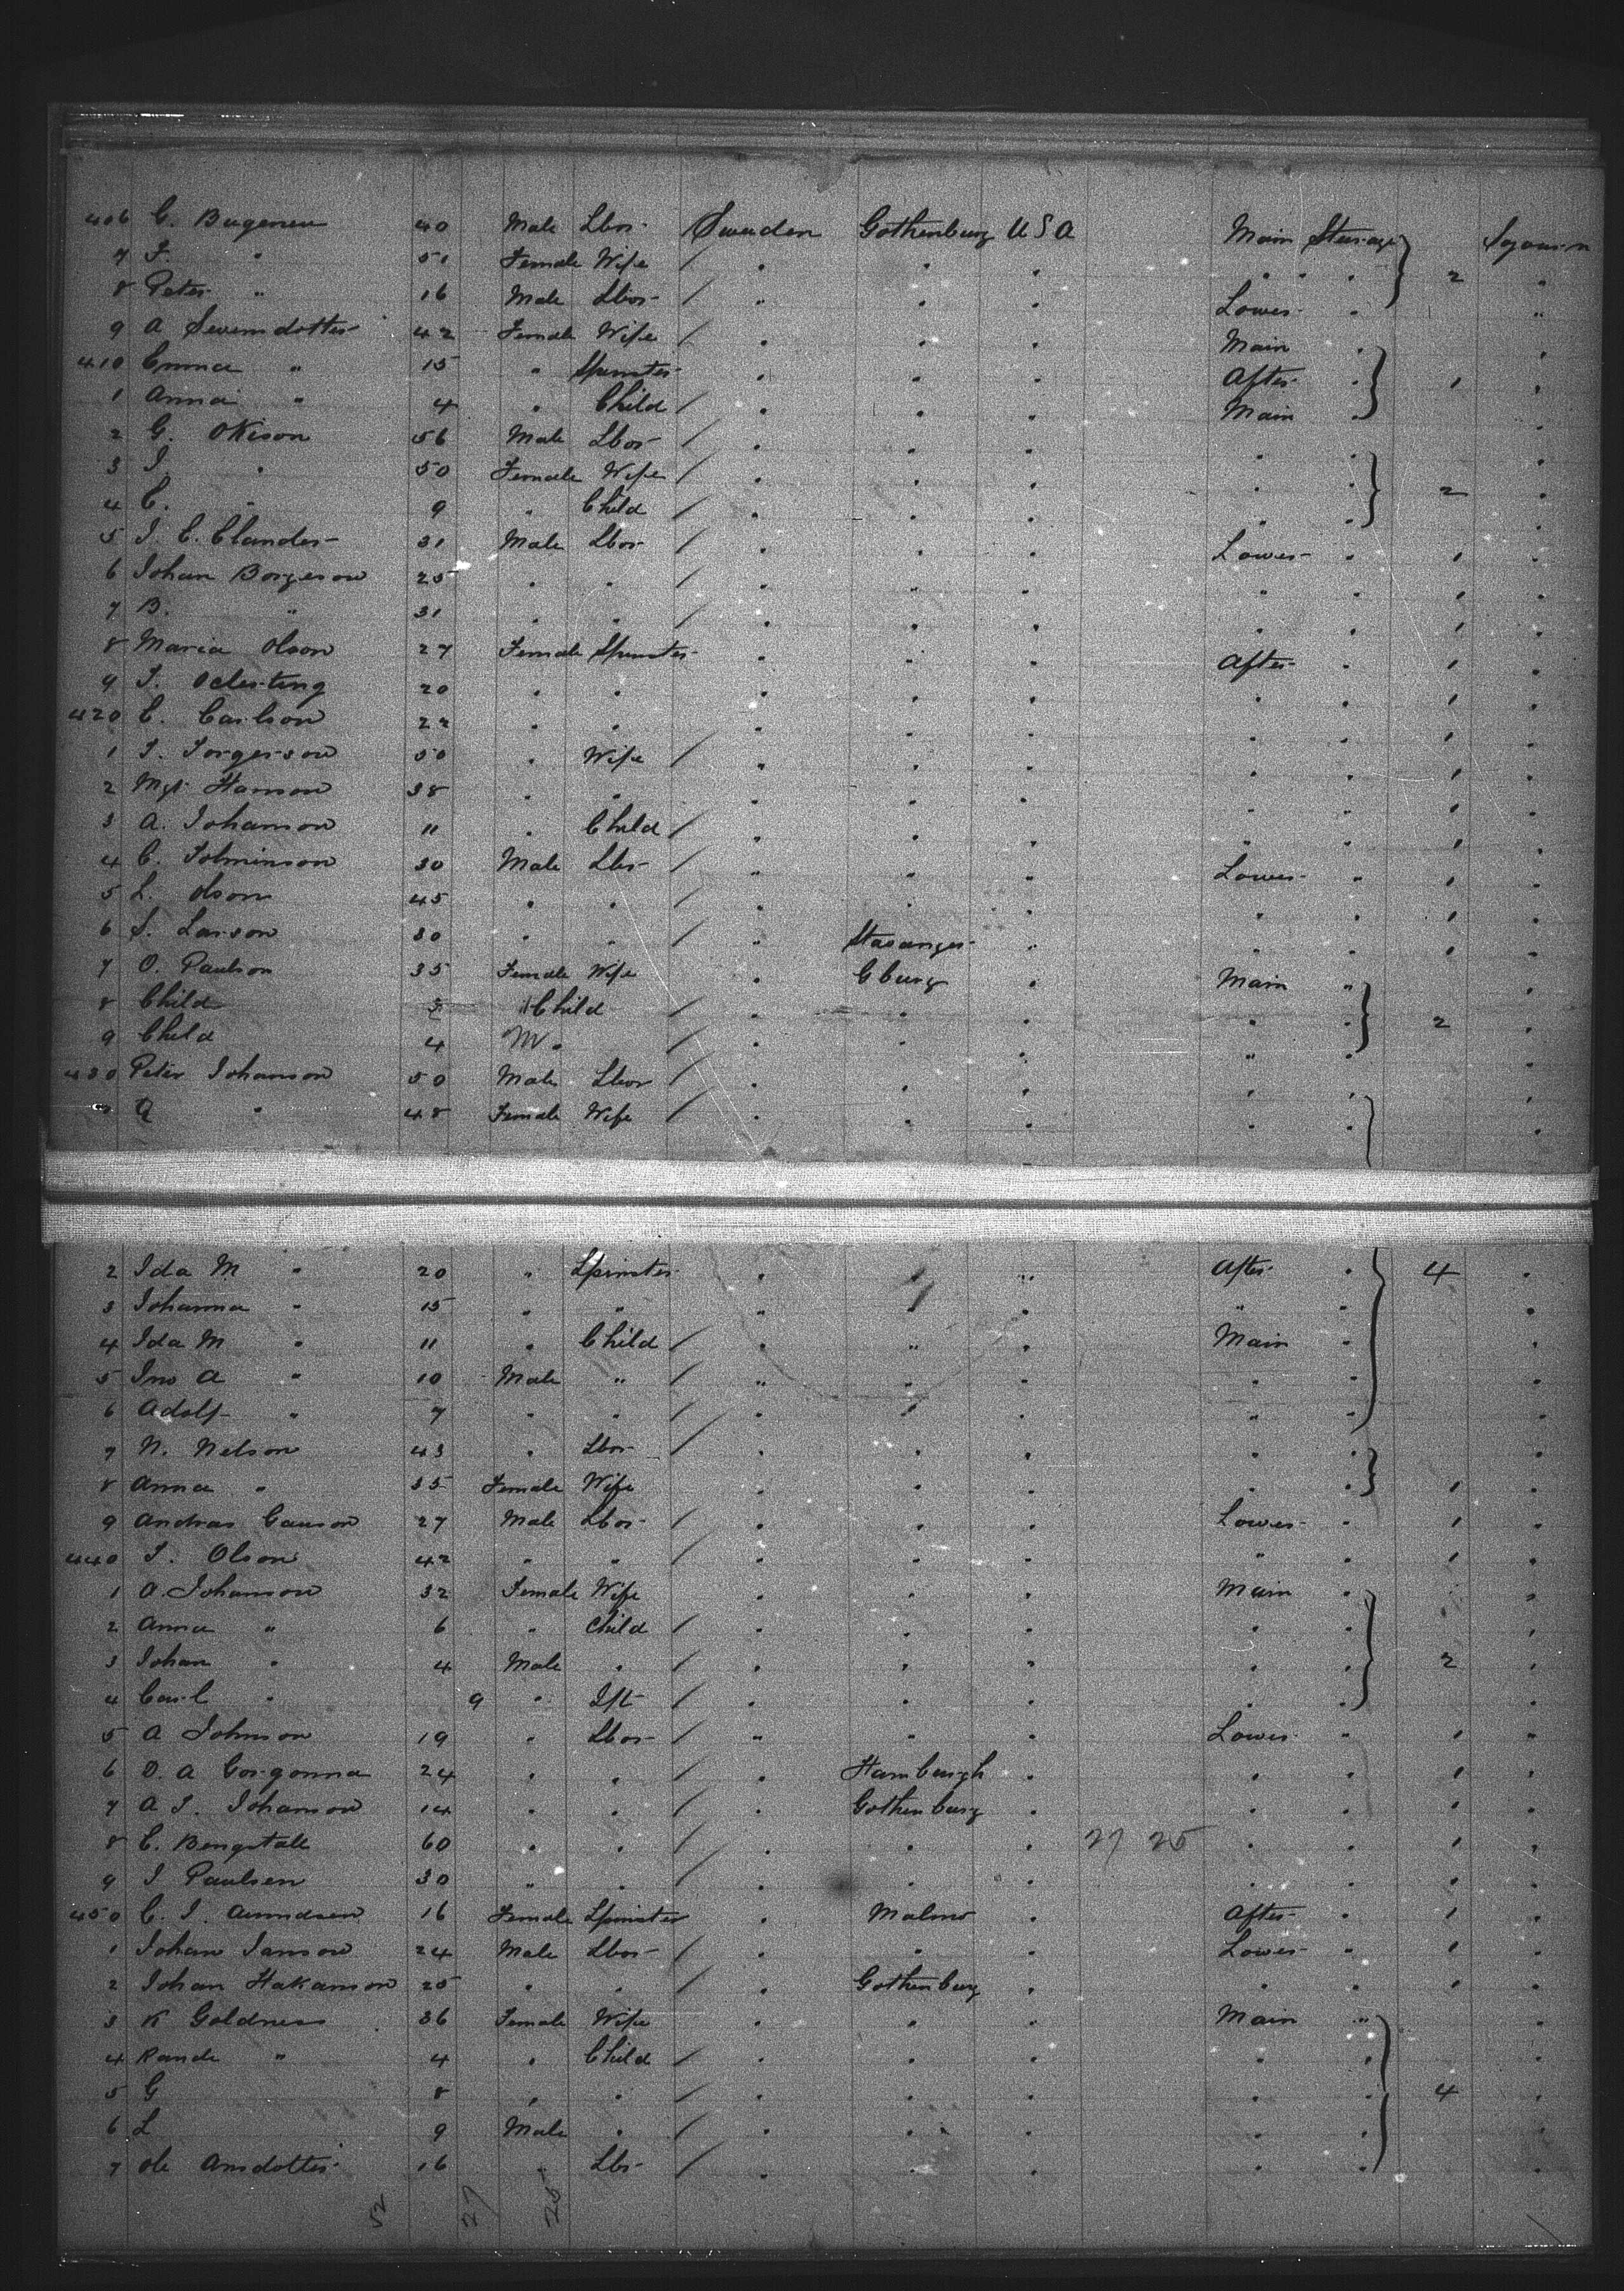 406 C. Bugeneu 40 Male Lbor Sweden Gothenburg USA Main Steerage Sojourn
7 F. " 51 Female Wife / " " " " " 2 "
8 Peter " 16 Male Lbor / " " " Lower " "
9 A Swensdotter 42 Female Wife / " " " Main " "
410 Emma " 15 " Spinster " " " After " 1 "
1 Anna " 4 " Child / " " " Main " "
2 G. Okison 56 Male Lbor / " " " " " "
3 I. " 50 Female Wife / " " " " " 2 "
4 C. " 9 " Child / " " " " " "
5 J. C. Clander 31 Male Lbor / " " " Lower " 1 "
6 Johan Borgeson 25 " " / " " " " " 1 "
7 B. " 31 " " / " " " " " 1 "
8 Maria Olson 27 Female Spinster " " " After " 1 "
9 J. 20 " " " " " " " 1 "
420 C. Carlson 22 " " " " " " " 1 "
1 J. Torgerson 50 " Wife / " " " " " 1 "
2 Mgt Hanson 38 " " " " " " " 1 "
3 A. Johanson 11 " Child / " " " " " 1 "
4 C. 30 Male Lbr / " " " Lower " 1 "
5 L. Olson 45 " " / " " " " " 1 "
6 S. Larson 30 " " / " Stavanger " " " 1 "
7 O. Paulson 35 Female Wife " Gburg " Main " "
8 Child 3 " Child / " " " " " 2 "
9 Child 4 M " / " " " " " "
430 Peter Johanson 50 Male Lbor / " " " " " "
A " 48 Female Wife / " " " " " "
2 Ida M " 20 " Spinster " " " After " 4 "
3 Johanna " 15 " " " " " " " "
4 Ida M " 11 " Child / " " " Main " "
5 Jno A " 10 Male " / " " " " " "
6 Adolf " 7 " " / " " " " " "
7 N. Nelson 43 " Lbor / " " " " " "
8 Anna " 35 Female Wife " " " " " 1 "
9 Andras Ganson 27 Male Lbor / " " " Lower " 1 "
440 J. Olson 42 " " / " " " " " 1 "
1 A. Johanson 32 Female Wife " " " Main " "
2 Anna " 6 " Child / " " " " " "
3 Johan " 4 Male " / " " " " " 2 "
4 Carl " 9 " Ift / " " " " " "
5 A Johnson 19 " Lbor / " " " Lower " 1 "
6 O. A Gorgonna 24 " " / " Hamburgh " " " 1 "
7 A J. Johanson 14 " " / " Gothenburg " " " 1 "
8 C. Bengstall 60 " " / " " " 27 25 " " 1 "
9 J Paulsen 30 " " / " " " " " 1 "
450 C. J. Amundsen 16 Female Spinster " Malmo " After " 1 "
1 Johan Janson 24 Male Lbor / " " " Lower " 1 "
2 Johan Hakanson 25 " " / " Gothenburg " " " 1 "
3 K Goldness 36 Female Wife " " " Main " "
4 Rande " 4 " Child / " " " " " "
5 G 8 " " / " " " " " 4 "
6 L 9 Male " / " " " " " "
7 Ole Arnsdotter 16 " Lbr / " " " " " "
52 27 25